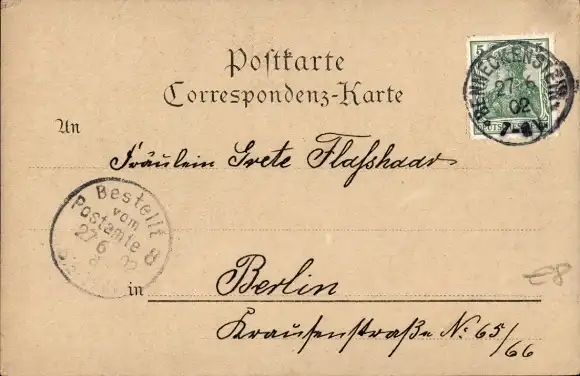 Postkarte
Correspondenz-Karte
An
Fräulein Grete Flasshaar
in Berlin
Krausenstraße No. 65/66
5
BENNECKENSTEIN
27 6
02
7-8
Bestellt
vom
Postamte 8
27 6 02
€8